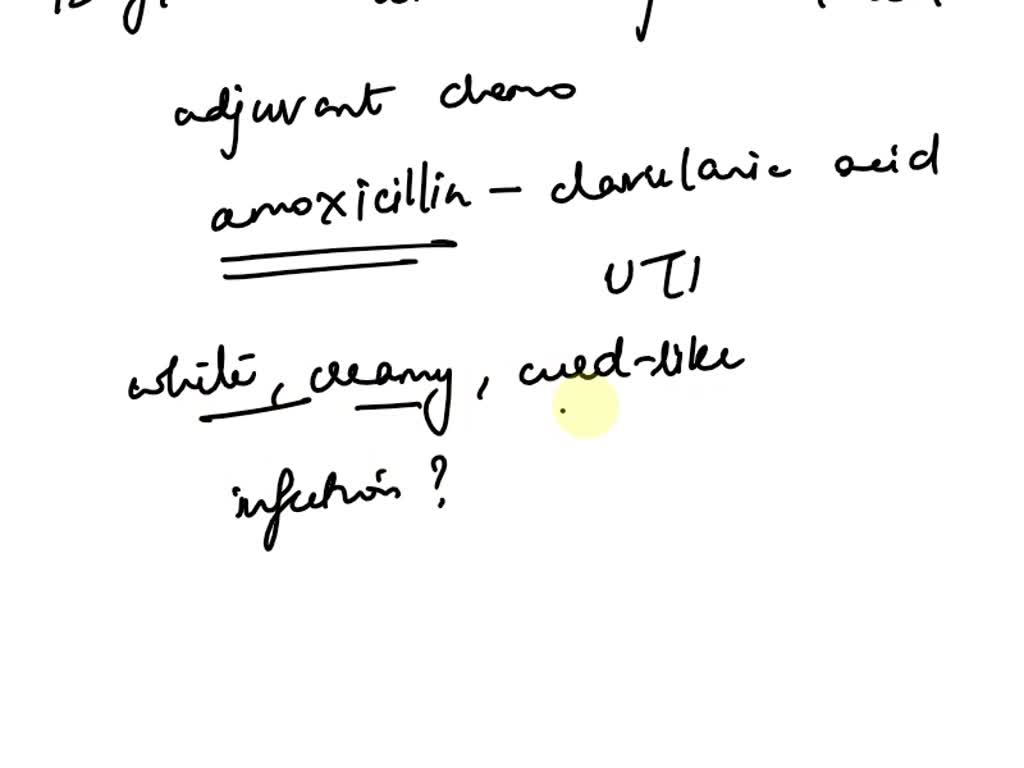 adjuvant chemo
amoxicillin - clavulanic acid
UTI
white, creamy, curd-like
infection?